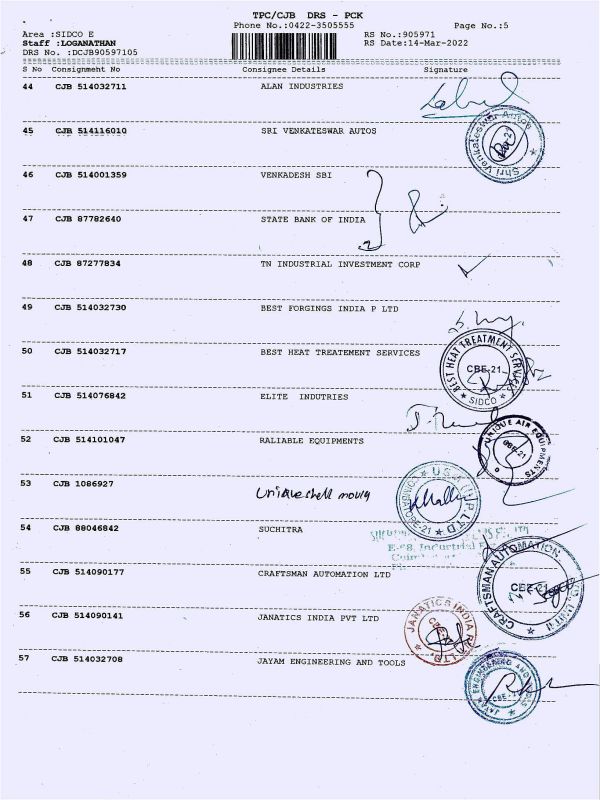 TPC/CJB DRS - PCK
Phone No.:0422-3505555 Page No.:5
Area :SIDCO E RS No.:905971
Staff :LOGANATHAN RS Date:14-Mar-2022
DRS No. :DCJB90597105
S No Consignment No Consignee Details Signature
44 CJB 514032711 ALAN INDUSTRIES
45 CJB 514116010 SRI VENKATESWAR AUTOS
Shri Venkateswar Autos
46 CJB 514001359 VENKADESH SBI
47 CJB 87782640 STATE BANK OF INDIA
48 CJB 87277834 TN INDUSTRIAL INVESTMENT CORP
49 CJB 514032730 BEST FORGINGS INDIA P LTD
50 CJB 514032717 BEST HEAT TREATEMENT SERVICES
BEST HEAT TREATMENT SERVICES
CBE-21
SIDCO
51 CJB 514076842 ELITE INDUTRIES
52 CJB 514101047 RALIABLE EQUIPMENTS
UNIQUE AIR EQUIPMENTS
CBE-21
53 CJB 1086927 Unique shell
54 CJB 88046842 SUCHITRA
E-68, Industrial
55 CJB 514090177 CRAFTSMAN AUTOMATION LTD
CRAFTSMAN AUTOMATION
CBE-21
56 CJB 514090141 JANATICS INDIA PVT LTD
JANATICS INDIA
57 CJB 514032708 JAYAM ENGINEERING AND TOOLS
JAYAM ENGINEERING AND TOOLS